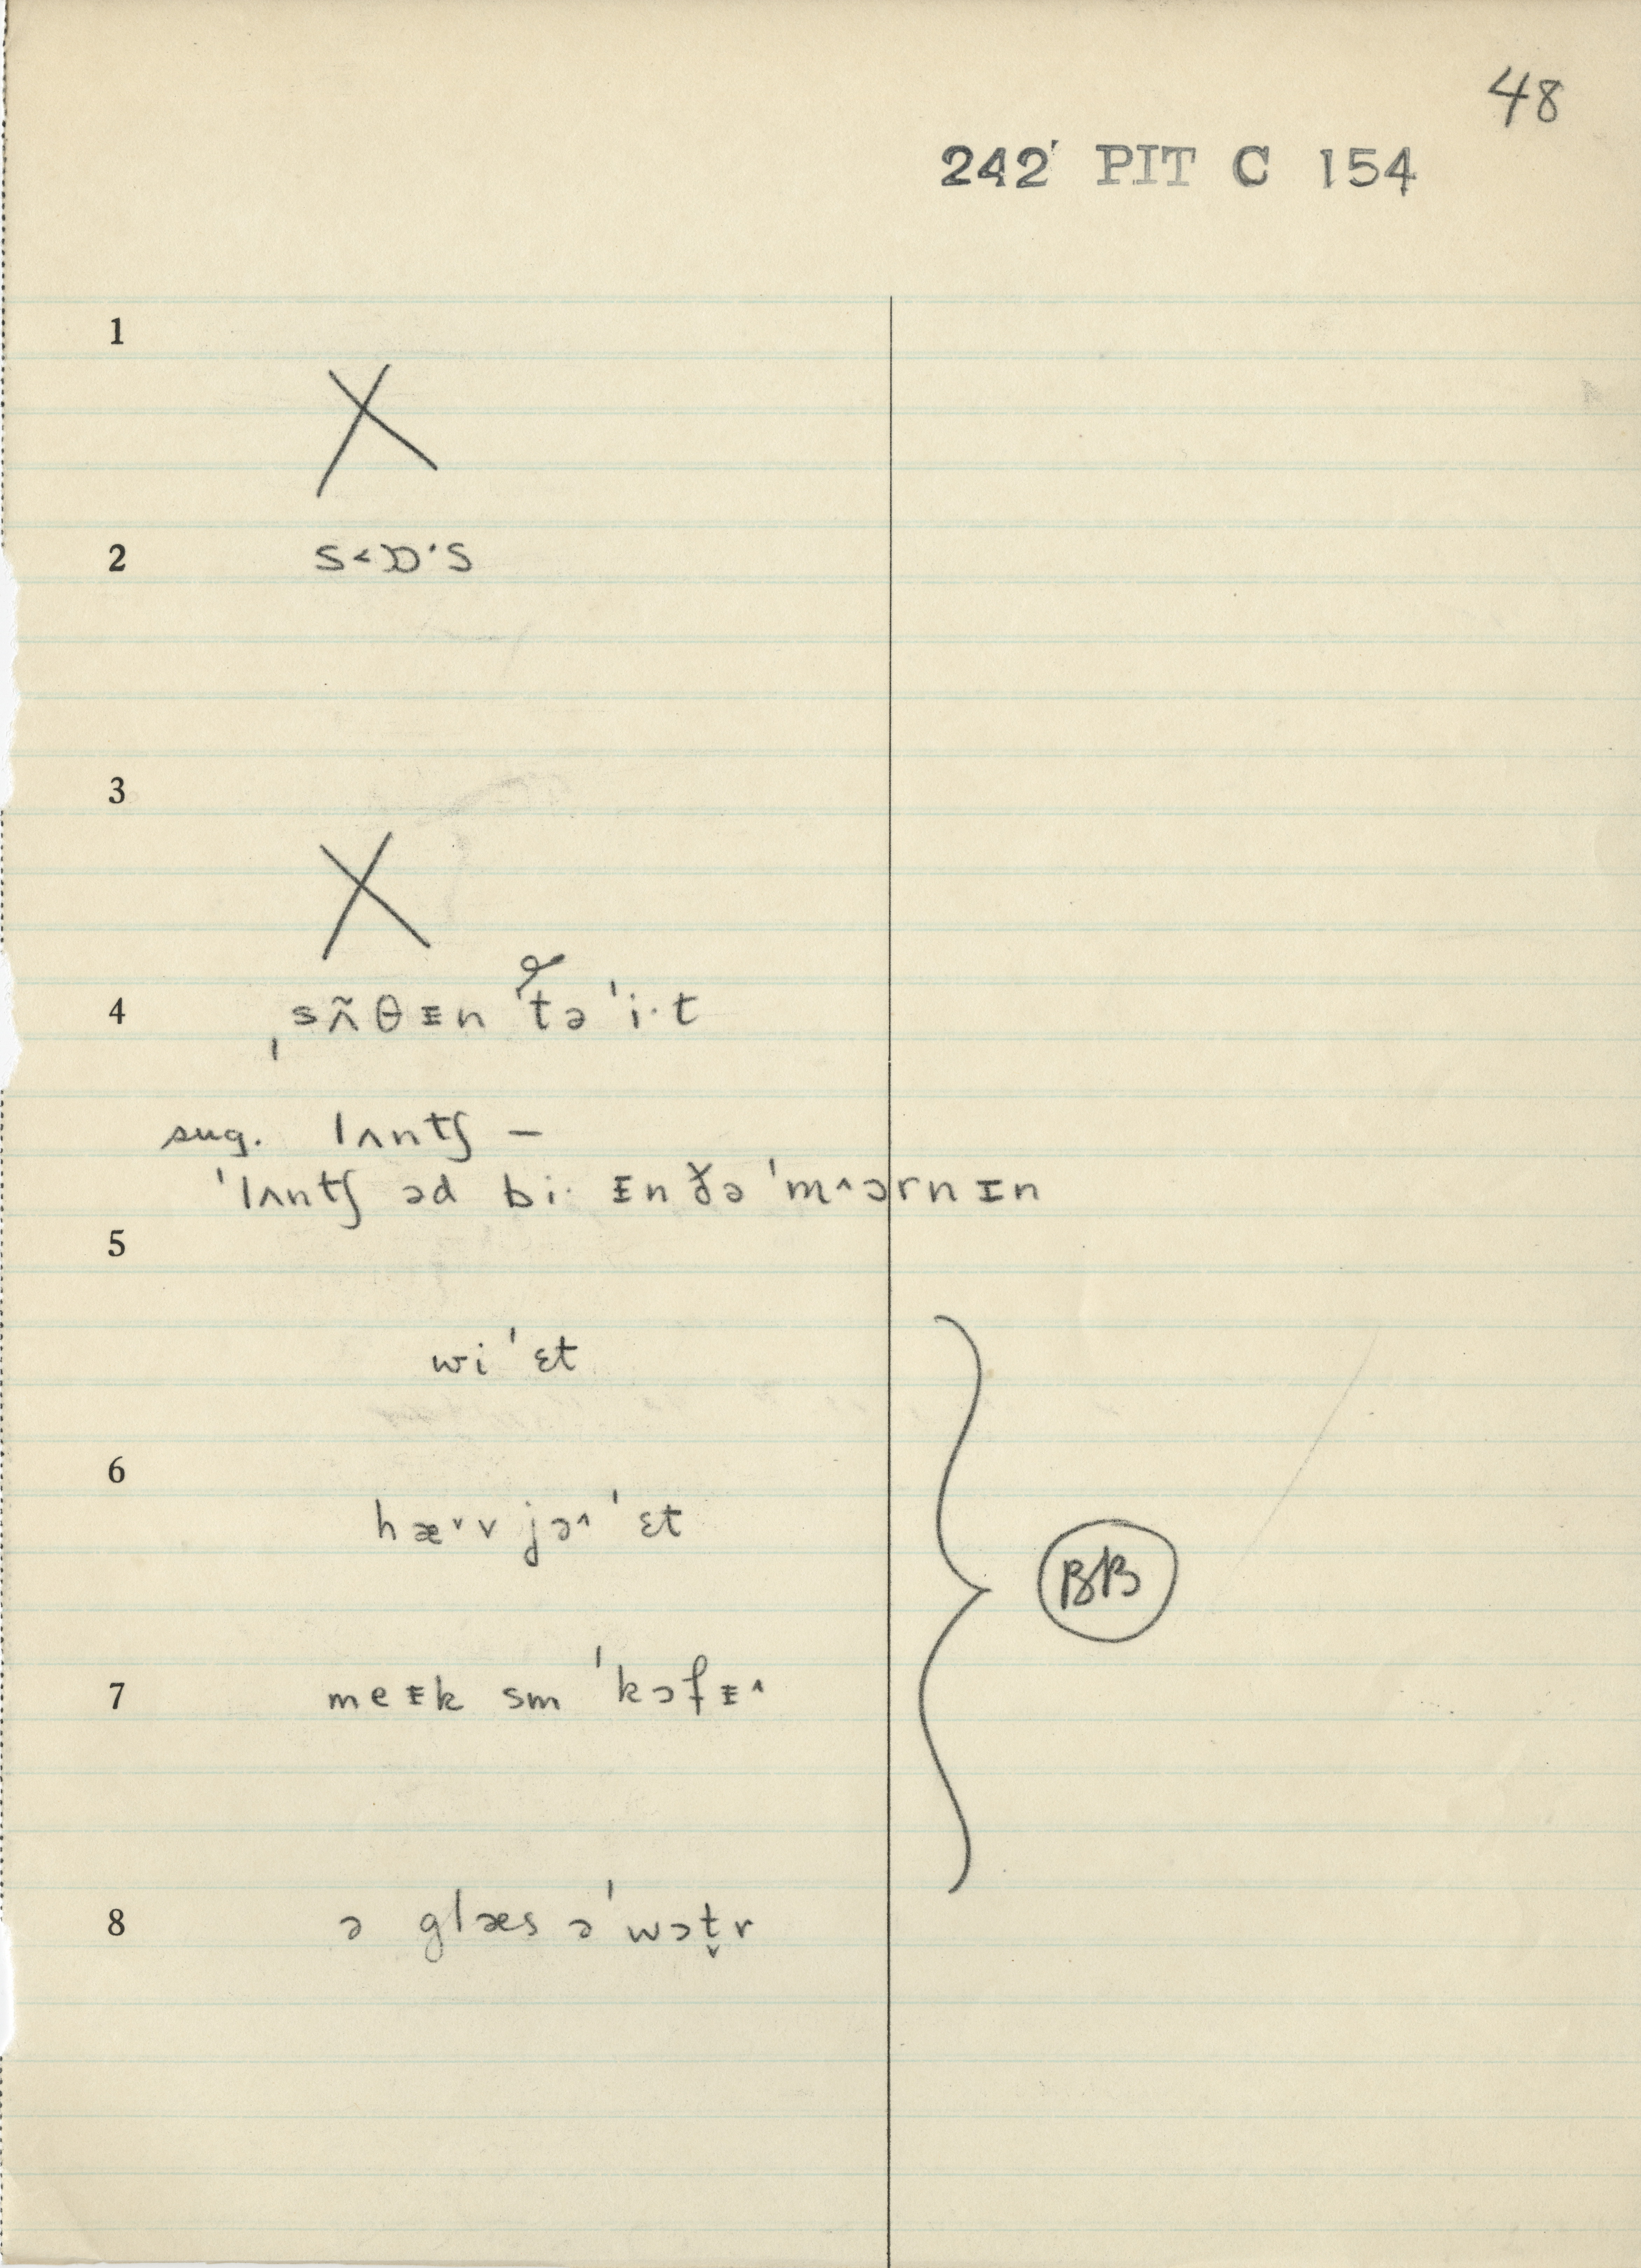 48
242 PIT C 154
1
X
2 s˂ɒ·s
3
X
4 ˌsʌ̃θᵻn tə ˈi·t
sug. lʌntʃ –
ˈlʌntʃ əd bi· ᵻn ðə ˈm^ɔrnɪn
5
wi ˈɛt
6
hæ˅v jə^ ˈɛt
7 meᵻk sm ˈkɔfᵻ^
8 ə glæs ə ˈwɔt̬r
BB